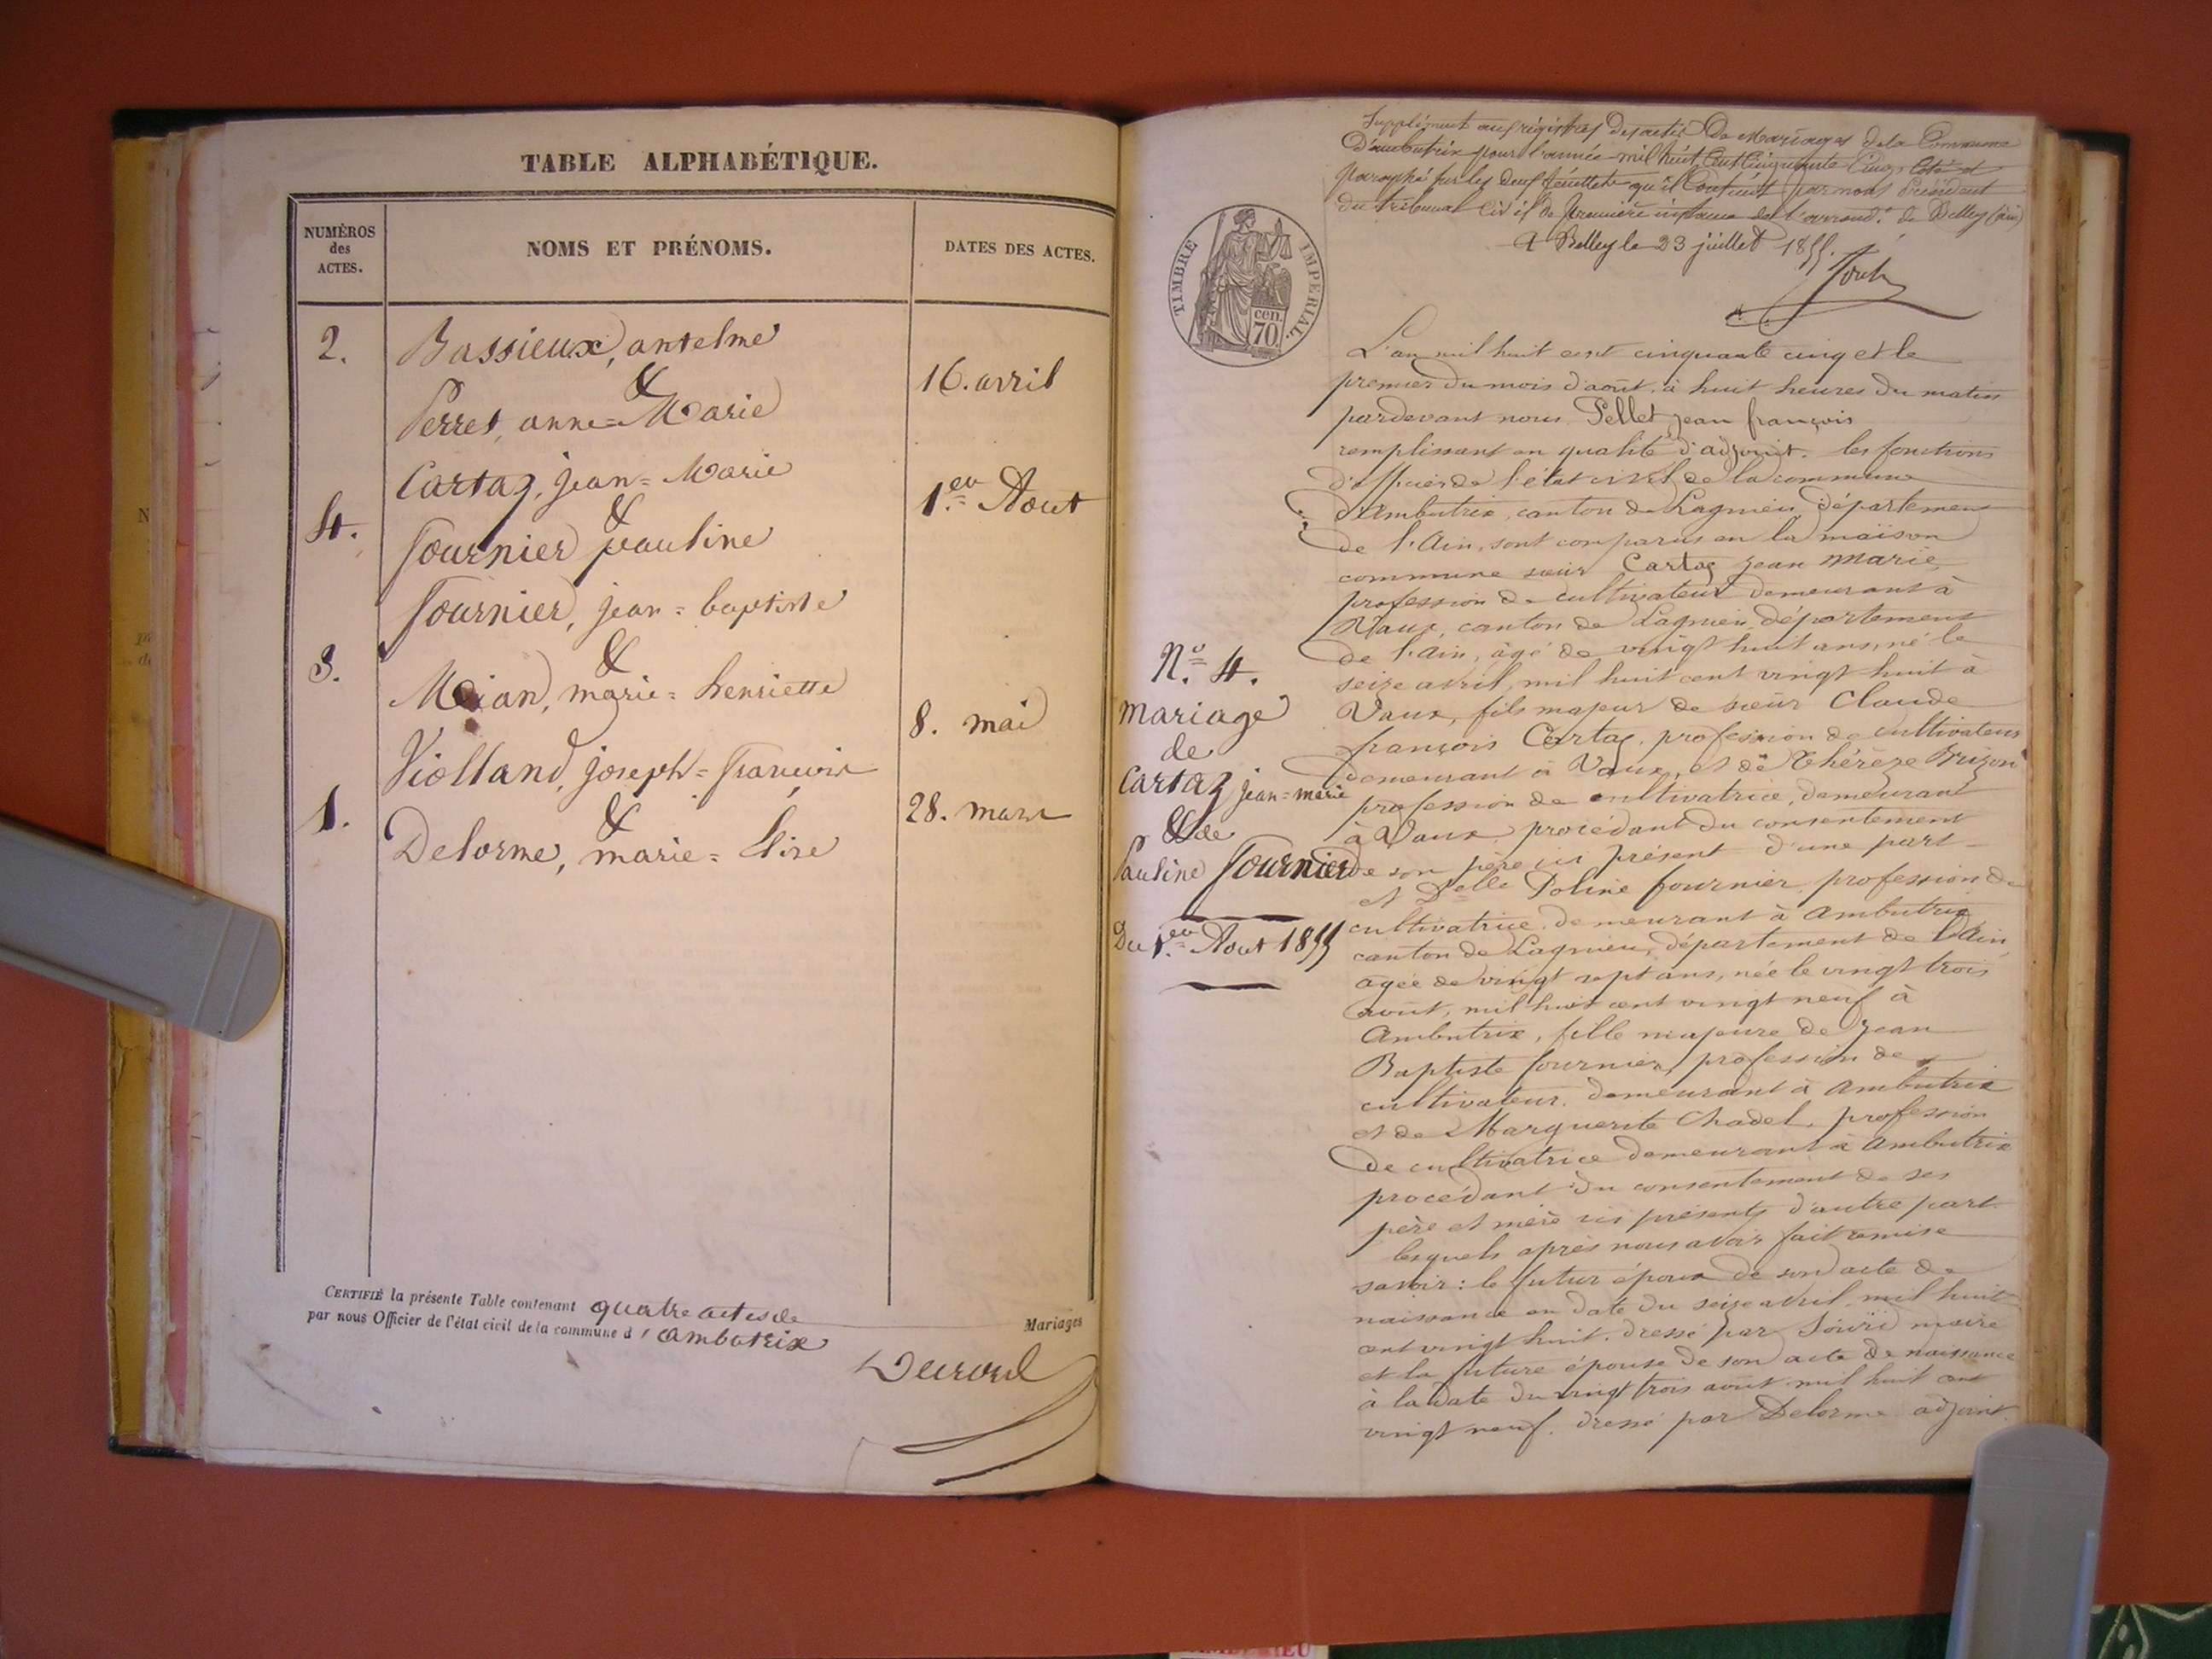 TABLE ALPHABÉTIQUE.
NUMÉROS
des
ACTES.
NOMS ET PRÉNOMS.
DATES DES ACTES.
2.
Bassieux, antelme
&
Perret, anne=Marie
16. avril
4.
Cartaz, jean=Marie
&
fournier pauline
1.er Aout
3.
fournier, jean=baptiste
&
Moian, marie=henriette
8. mai
1.
Violland, joseph=françois
&
Delorme, marie=Elise
28. mars
CERTIFIÉ la présente Table contenant quatre actes de Mariages
par nous Officier de l'état civil de la commune d'ambutrix
Supplément aux régistres des actes De Mariages de la Commune
D'ambutrix pour l'année mil huit Cent Cinquante Cinq, Coté et
Paraphé sur les deux feuillets qu'il Contient par nous Président
du tribunal Civil de première instance de l'arrond.t de Belley (ain)
A Belley le 23 juillet 1855.
TIMBRE IMPÉRIAL.
cen.
70
N.o 4.
mariage
de
Cartaz jean=marie
& de
Pauline fournier
Du 1.er Aout 1855
L'an mil huit cent cinquante cinq et le
premier du mois d'août, à huit heures du matin
pardevant nous Pellet jean françois
remplissant en qualité d'adjoint les fonctions
d'officier de l'état civil de la commune
d'Ambutrix, canton de Lagnieu, département
de l'Ain, sont comparus en la maison
commune sieur Cartaz jean marie
profession de cultivateur demeurant à
Vaux, canton de Lagnieu, département
de l'Ain, âgé de vingt huit ans, né le
seize avril, mil huit cent vingt huit à
Vaux, fils majeur de sieur Claude
françois Cartaz, profession de cultivateur
demeurant à Vaux, et de Thérèze Brizon
profession de cultivatrice, demeurant
à Vaux, procédant du consentement
de son père ici présent d'une part
et Delle Poline fournier, profession de
cultivatrice, demeurant à Ambutrix
canton de Lagnieu, département de l'Ain,
agée de vingt sept ans, née le vingt trois
août, mil huit cent vingt neuf à
Ambutrix, fille majeure de Jean
Baptiste fournier, profession de
cultivateur, demeurant à Ambutrix
et de Marguerite Chadel, profession
de cultivatrice demeurant à Ambutrix
procédant du consentement de ses
père et mère ici présents d'autre part.
lesquels après nous avoir fait remise
savoir: le futur époux de son acte de
naissance en date du seize avril, mil huit
cent vingt huit, dressé par maire
et la future épouse de son acte de naissance
à la date du vingt trois août mil huit cent
vingt neuf, dressé par Delorme adjoint.